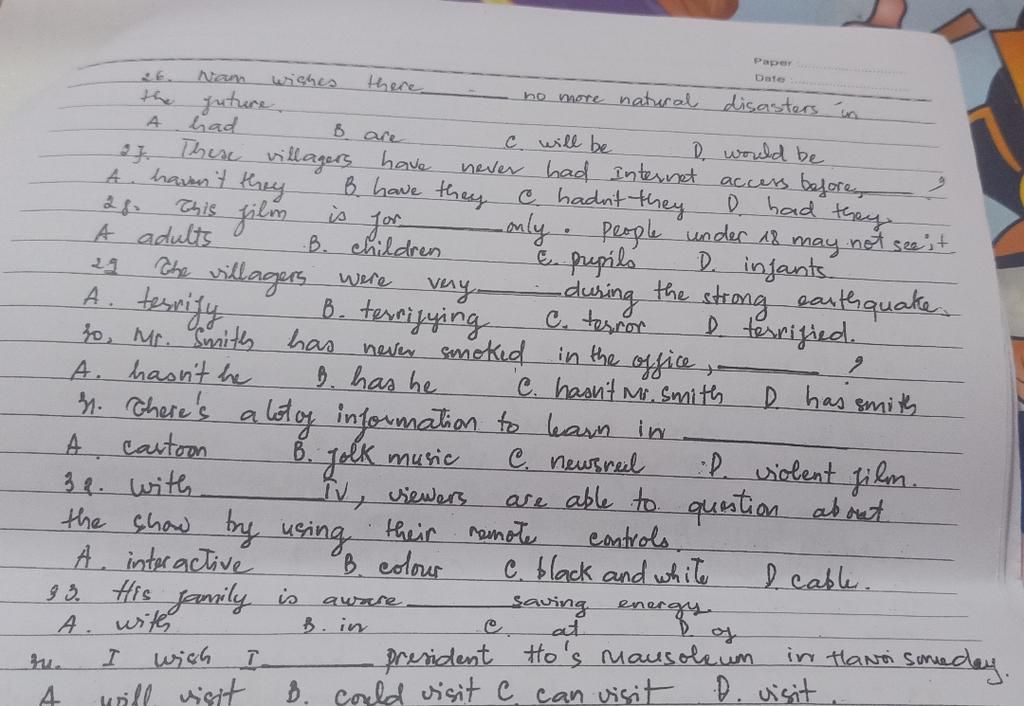 Paper
Date
26. Nam wishes there ______ no more natural disasters in
the future.
A had B. are C. will be D. would be
27. These villagers have never had Internet access before, ______ ?
A. haven't they B have they C hadn't they D. had they.
28. This film is for ______ only. people under 18 may not see it
A adults B. children C. pupils D. infants
29 The villagers were very ______ during the strong earthquake.
A. terrify B. terrifying C. terror D terrified.
30, Mr. Smith has never smoked in the office, ______ ?
A. hasn't he B. has he C. hasn't Mr. Smith D. has smith
31. There's a lot of information to learn in ______
A. cartoon B. folk music C. newsreel D. violent film.
32. with ______ TV, viewers are able to question about
the show by using their remote controls.
A. interactive B. colour C. black and white D cable.
33. His family is aware ______ saving energy.
A. with B. in C. at D. of
34. I wish I ______ president Ho's Mausoleum in Hanoi someday.
A will visit B. could visit C can visit D. visit.